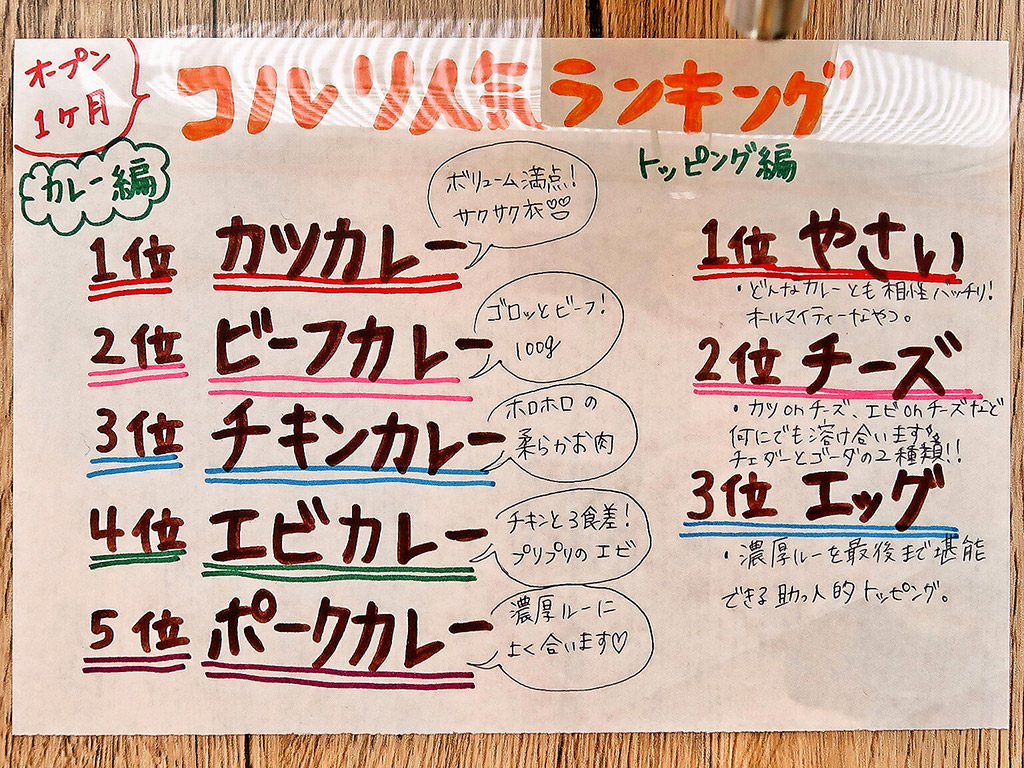 オープン
1ヶ月
コルリ人気ランキング
カレー編
1位 カツカレー
ボリューム満点!
サクサク衣♡♡
2位 ビーフカレー
ゴロッとビーフ!
100g
3位 チキンカレー
ホロホロの
柔らかお肉
4位 エビカレー
チキンと3食差!
プリプリのエビ
5位 ポークカレー
濃厚ルーに
よく合います♡
トッピング編
1位 やさい
・どんなカレーとも相性バッチリ!
オールマイティーなやつ。
2位 チーズ
・カツonチーズ、エビonチーズなど
何にでも溶け合います
チェダーとゴーダの2種類!!
3位 エッグ
・濃厚ルーを最後まで堪能
できる助っ人的トッピング。